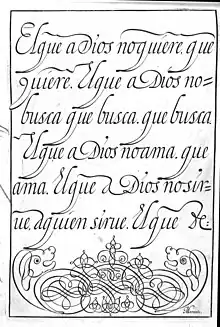 El que a Dios no quiere. que
quiere. El que a Dios no-
busca que busca. que busca
El que a Dios no ama. que
ama. El que a Dios no sir-
ue, a quien sirue. El que &c.